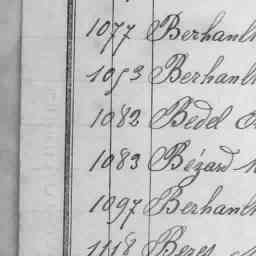 1077 Berhault
1053 Berhault
1082 Bedel
1083 Bézard
1097 Berhault
1118 Beres